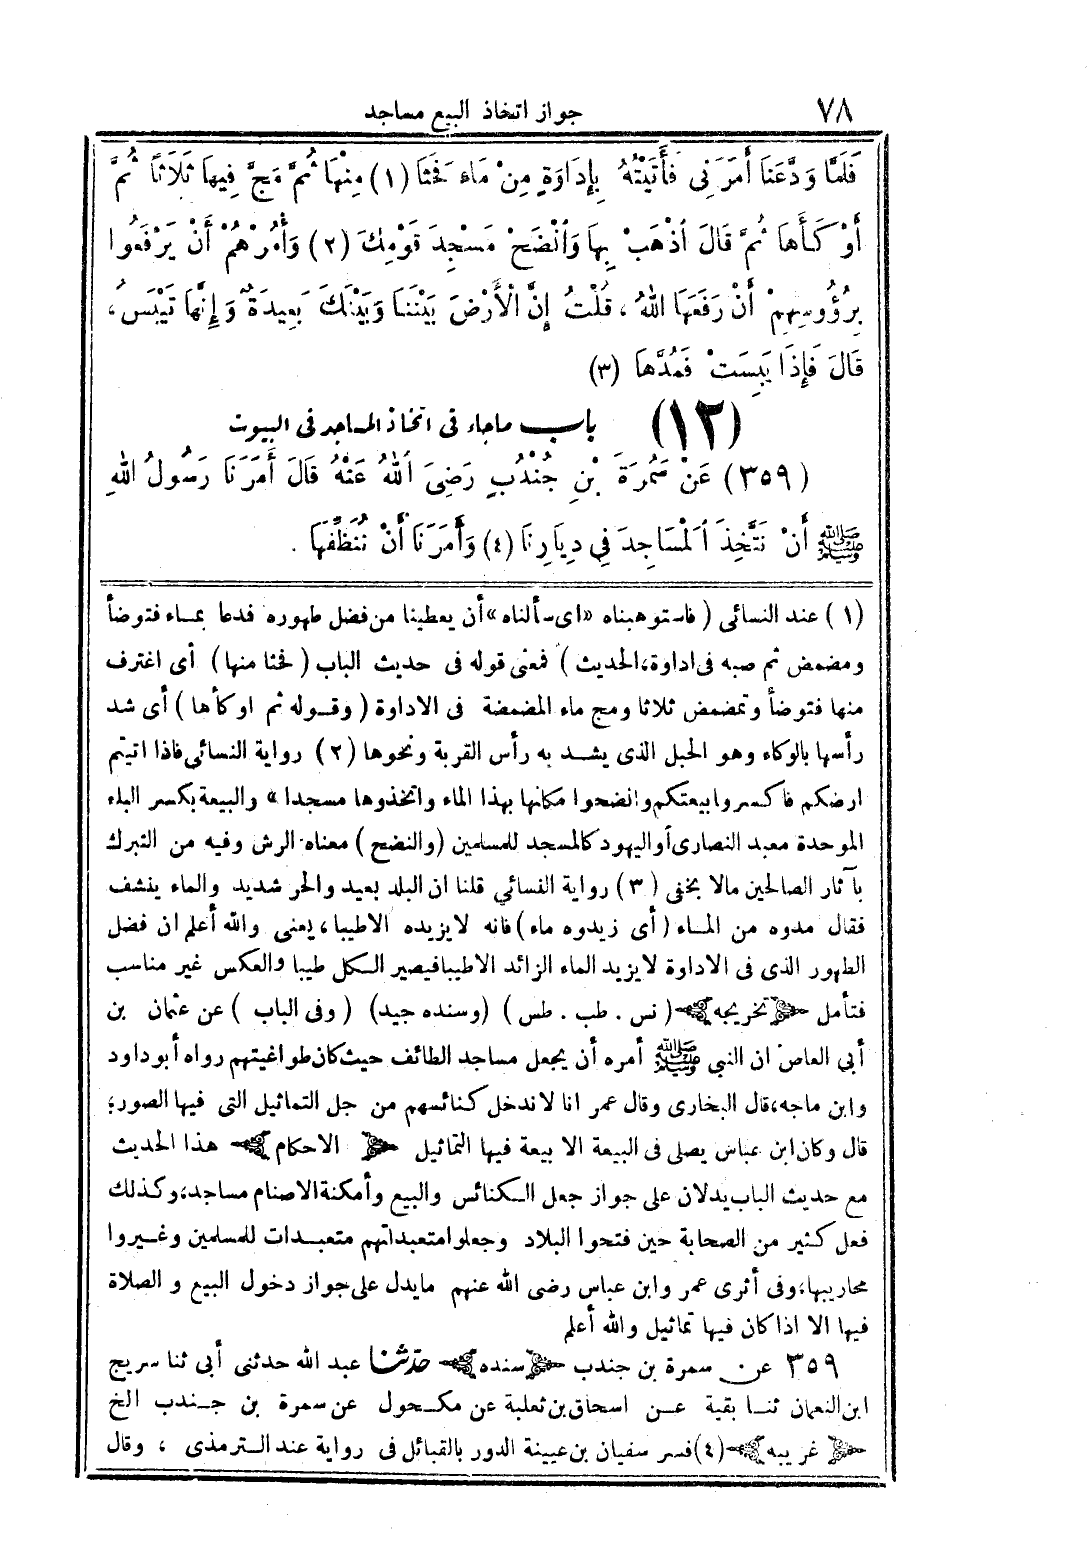 ٧٨
جواز اتخاذ البيع مساجد
فَلَمَّا وَدَّعَنَا أَمَرَنِى فَأَتَيْتُهُ بِإِدَاوَةٍ مِنْ مَاءٍ فَحَثَا (١) مِنْهَا ثُمَّ مَجَّ فِيهَا ثَلَاثًا ثُمَّ
أَوْكَأَهَا ثُمَّ قَالَ اُذْهَبْ بِهَا وَاُنْضَحْ مَسْجِدَ قَوْمِكَ (٢) وَأْمُرْهُمْ أَنْ يَرْفَعُوا
بِرُؤُوسِهِمْ أَنْ رَفَعَهَا اللهُ ، قُلْتُ إِنَّ الْأَرْضَ بَيْنَنَا وَبَيْنَكَ بَعِيدَةٌ وَإِنَّهَا تَيْبَسُ ،
قَالَ فَإِذَا يَبِسَتْ فَمُدَّهَا (٣)
(١٢) باب ماجاء فى اتخاذ المساجد فى البيوت
(٣٥٩) عَنْ سَمُرَةَ بْنِ جُنْدُبٍ رَضِىَ اَللهُ عَنْهُ قَالَ أَمَرَنَا رَسُولُ اللهِ
ﷺ أَنْ نَتَّخِذَ اَلْمَسَاجِدَ فِي دِيَارِنَا (٤) وَأَمَرَنَا أَنْ نُنَظِّفَهَا .
(١) عند النسائى (فاستوهبناه «اى سألناه» أن يعطينا من فضل طهوره فدعا بماء فتوضأ
ومضمض ثم صبه فى اداوة، الحديث) فمعنى قوله فى حديث الباب (فحثا منها) أى اغترف
منها فتوضأ وتمضمض ثلاثا ومج ماء المضمضة فى الاداوة (وقوله ثم اوكأها) أى شد
رأسها بالوكاء وهو الحبل الذى يشد به رأس القربة ونحوها (٢) رواية النسائى فاذا اتيتم
ارضكم فاكسروا بيعتكم وانضحوا مكانها بهذا الماء واتخذوها مسجدا » والبيعة بكسر الباء
الموحدة معبد النصارى أو اليهود كالمسجد للمسلمين (والنضح) معناه الرش وفيه من التبرك
بآثار الصالحين مالا يخفى (٣) رواية النسائى قلنا ان البلد بعيد والحر شديد والماء ينشف
فقال مدوه من الماء (أى زيدوه ماء) فانه لا يزيده الا طيبا، يعنى والله أعلم ان فضل
الطهور الذى فى الاداوة لا يزيد الماء الزائد الا طيبا فيصير الكل طيبا والعكس غير مناسب
فتأمل ﴿تخريجه﴾ (نس . طب . طس) (وسنده جيد) (وفى الباب) عن عثمان بن
أبي العاص ان النبي ﷺ أمره أن يجعل مساجد الطائف حيث كان طواغيتهم رواه أبو داود
وابن ماجه، قال البخارى وقال عمر انا لا ندخل كنائسهم من جل التماثيل التى فيها الصور؛
قال وكان ابن عباس يصلى فى البيعة الا بيعة فيها التماثيل ﴿الاحكام﴾ هذا الحديث
مع حديث الباب يدلان على جواز جعل الكنائس والبيع وأمكنة الاصنام مساجد، وكذلك
فعل كثير من الصحابة حين فتحوا البلاد وجعلوا متعبداتهم متعبدات للمسلمين وغيروا
محاريبها، وفى أثرى عمر وابن عباس رضى الله عنهم ما يدل على جواز دخول البيع و الصلاة
فيها الا اذا كان فيها تماثيل والله أعلم
٣٥٩ عن سمرة بن جندب ﴿سنده﴾ حدثنا عبد الله حدثنى أبى ثنا سريج
ابن النعمان ثنا بقية عن اسحاق بن ثعلبة عن مكحول عن سمرة بن جندب الخ
﴿غريبه﴾ (٤) فسر سفيان بن عيينة الدور بالقبائل فى رواية عند الترمذى ، وقال